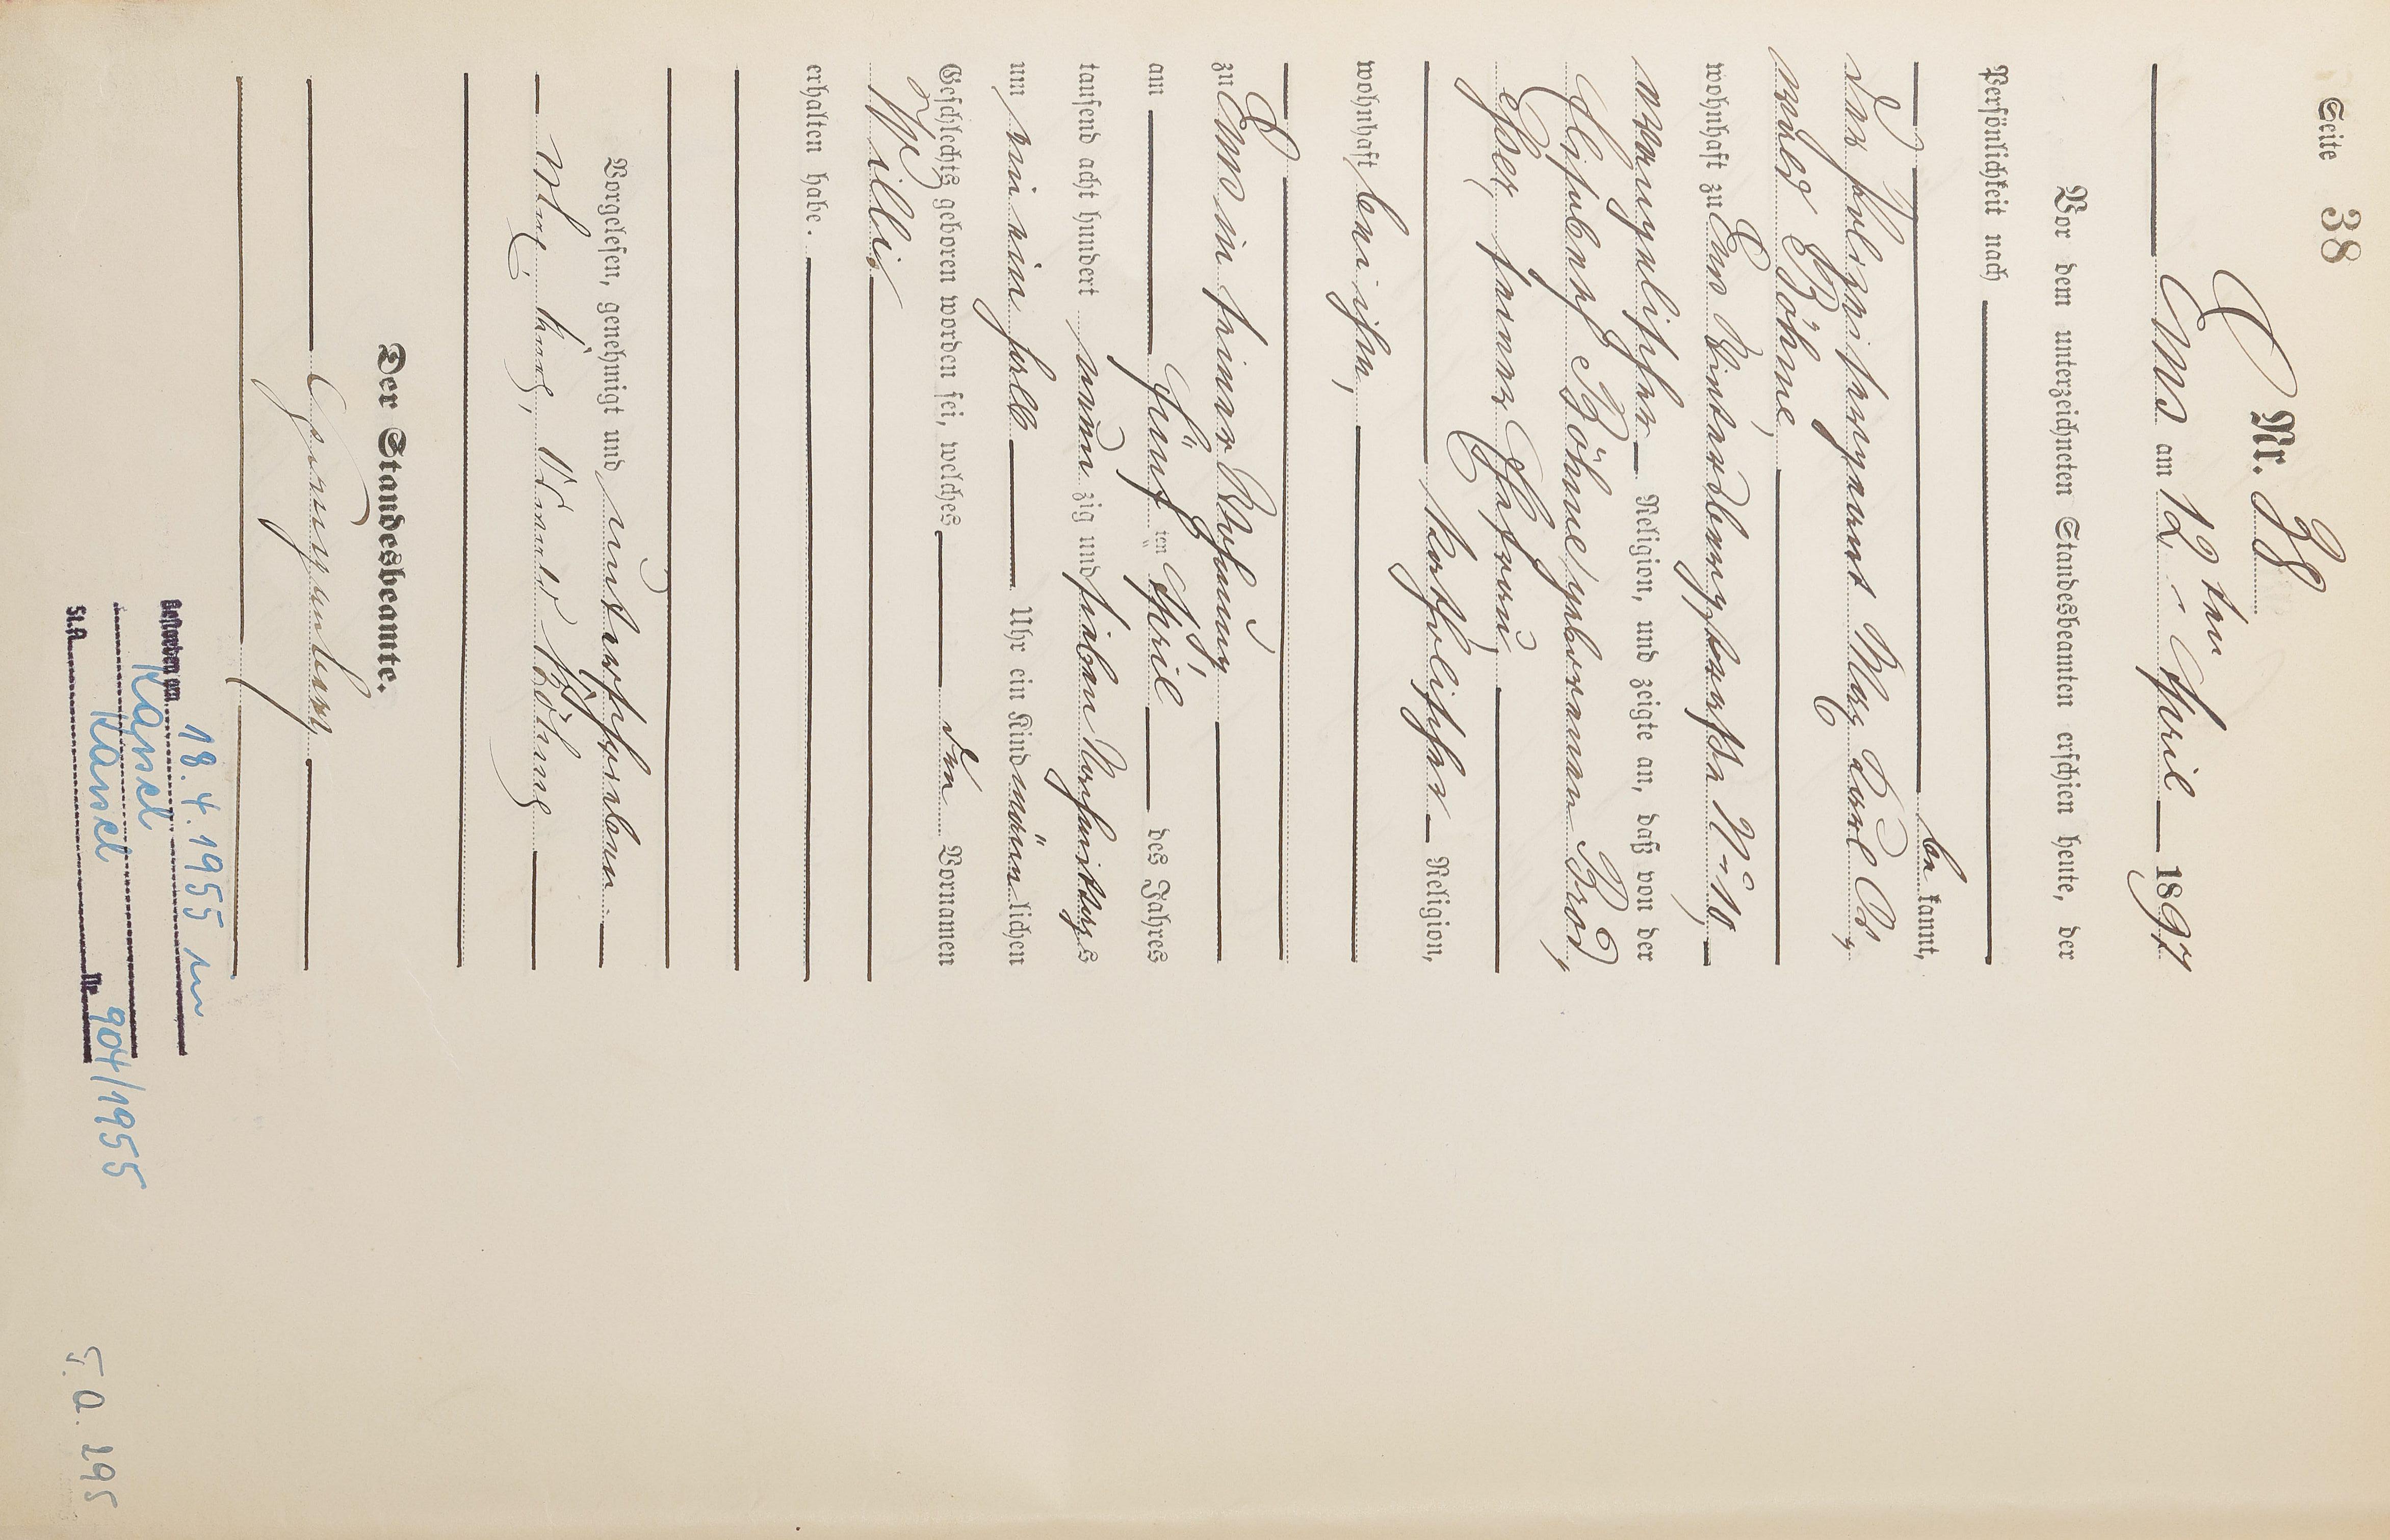 Seite 38
Nr. 38
Ems am 12ten April 1897
Vor dem unterzeichneten Standesbeamten erschien heute, der
Persönlichkeit nach
be kannt,
der Polizeisergeant Max Karl Os,
wald Böhme,
wohnhaft zu Ems Winterbergstraße No 10,
evangelischer Religion, und zeigte an, daß von der
Elisabeth Böhme geborenen Brod,
esser, seiner Ehefrau,
katholischer Religion,
wohnhaft bei ihm,
zu Ems in seiner Wohnung,
am fünften April des Jahres
tausend acht hundert neun zig und sieben Vormittags
um ein ein halb Uhr ein Kind männlichen
Geschlechts geboren worden sei, welches den Vornamen
Willi
erhalten habe.
Vorgelesen, genehmigt und unterschrieben
Max Karl Oswald Böhme
Der Standesbeamte.
Gestorben am 18.4.1955 in
Kassel
St.A. Kassel Nr. 904/1955